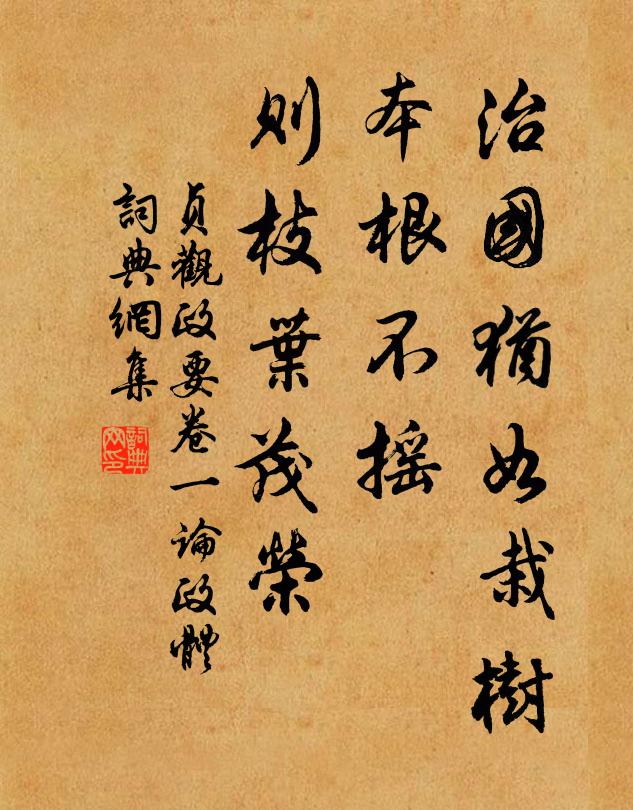 治國猶如栽樹
本根不摇
則枝葉茂榮
貞觀政要卷一論政體
詞典網集
詞典網印